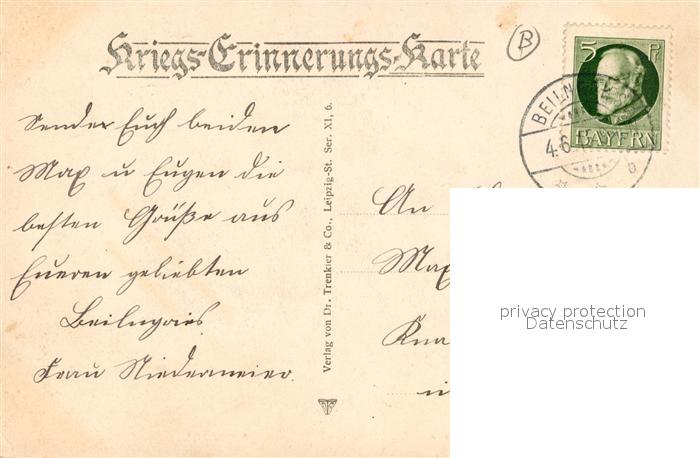 Kriegs-Erinnerungs-Karte
B
5 Pf
BAYERN
BEILN
4.6
b
Sender Euch beiden
Max u Eugen die
besten Grüße aus
Eueren geliebten
Beilngries
Frau Niedermeier.
Verlag von Dr. Trenkler & Co., Leipzig-St. Ser. XI, 6.
An
Max
Kna
privacy protection
Datenschutz